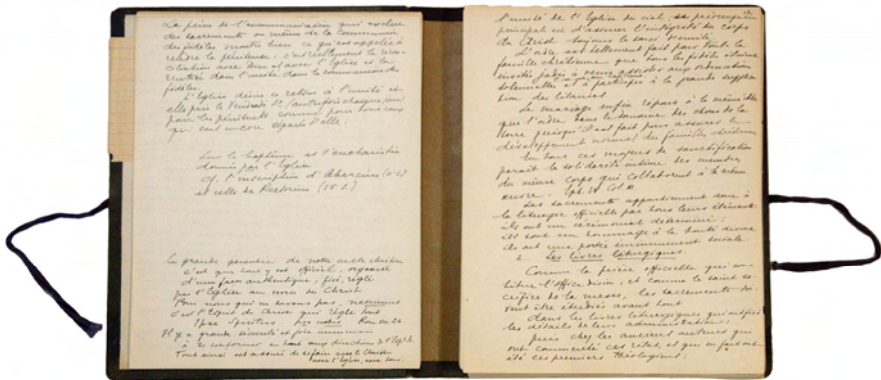 La peine de l'excommunication qui exclue
des sacrements ou même de la Communion
des fidèles montre bien ce qu'est appelée à
rendre la pénitence: c'est réellement la réconciliation
avec Dieu et avec l'Eglise et la
rentrée dans l'unité, dans la communion des
fidèles.
L'Eglise désire ce retour à l'unité et
elle prie le Vendredi St (autrefois chaque jour)
pour les pénitents comme pour tous ceux
qui sont encore séparés d'elle.
Sur le baptême et l'eucharistie
donnés par l'Eglise
cf. l'inscription d'Abercius
et celle de Pectorius
La grande garantie de notre culte chrétien
c'est que tout y est officiel, organisé
d'une façon authentique, fixé, réglé
par l'Eglise au nom du Christ
Pour nous qui ne savons pas, nescimus
c'est l'Esprit du Christ qui règle tout
Ipse Spiritus, pro nobis Rom
Il y a grande sécurité et joie
à se conformer en tout aux directions de l'Eglise
Tout ainsi est assuré de se faire avec le Christ
avec l'Eglise, avec tous.
l'unité de l'Eglise du ciel; sa préoccupation
principale est d'assurer l'intégrité du corps
du Christ toujours la sainte
L'ordre est tellement fait pour toute la
famille chrétienne que tous les fidèles étaient
invités jadis à venir assister aux ordinations
solennelles et à participer à la grande supplication
des litanies.
Le mariage enfin répare à la même
que l'ordre dans le domaine des choses de la
terre puisqu'il est fait pour assurer le
développement normal des familles chrétiennes
En tous ces moyens de sanctification
paraît la solidarité intime des membres
du même corps qui collaborent à la même
œuvre. Eph. Col.
Les sacrements appartiennent donc à
la liturgie officielle par tous leurs éléments
ils ont un cérémonial déterminé;
ils sont un hommage à la bonté divine
ils ont une portée éminemment sociale
2 Les livres liturgiques
Comme la prière officielle qui constitue
l'office divin, et comme le saint sacrifice
de la messe, les sacrements doivent
être étudiés avant tout
dans les livres liturgiques qui ont fixé
les détails de leur administration
puis chez les anciens auteurs qui
ont commenté ces rites, et qui en font ont
été ces premiers théologiens.